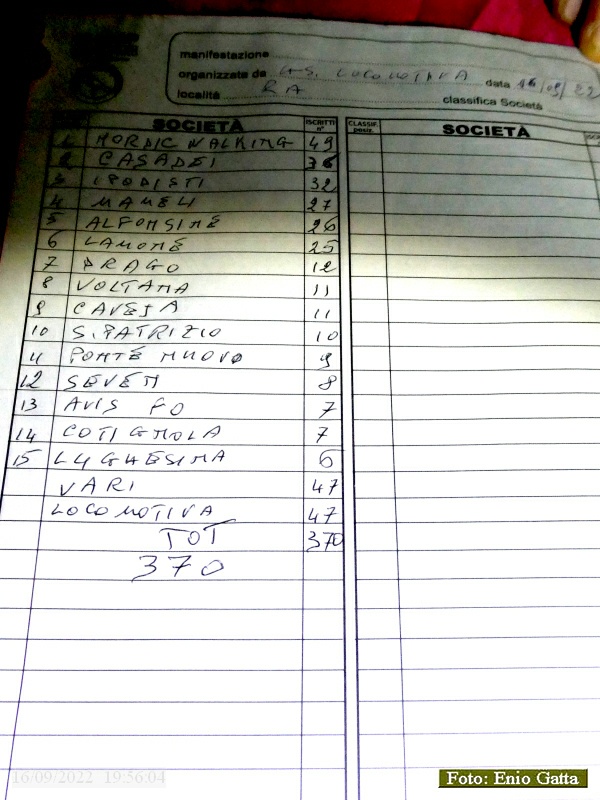 manifestazione
organizzata da G.S. LOCOMOTIVA data 16/09/22
località RA
classifica Società
SOCIETÀ ISCRITTI n° CLASSIF. posiz. SOCIETÀ
1 NORDIC WALKING 49
2 CASADEI 36
3 IPODISTI 32
4 MAMELI 27
5 ALFONSINE 26
6 LAMONE 25
7 DRAGO 12
8 VOLTANA 11
9 CAVEJA 11
10 S. PATRIZIO 10
11 PONTE NUOVO 9
12 SEVEN 8
13 AVIS FO 7
14 COTIGNOLA 7
15 LUGHESINA 6
VARI 47
LOCOMOTIVA 47
TOT 370
370
16/09/2022 19:56:04
Foto: Enio Gatta